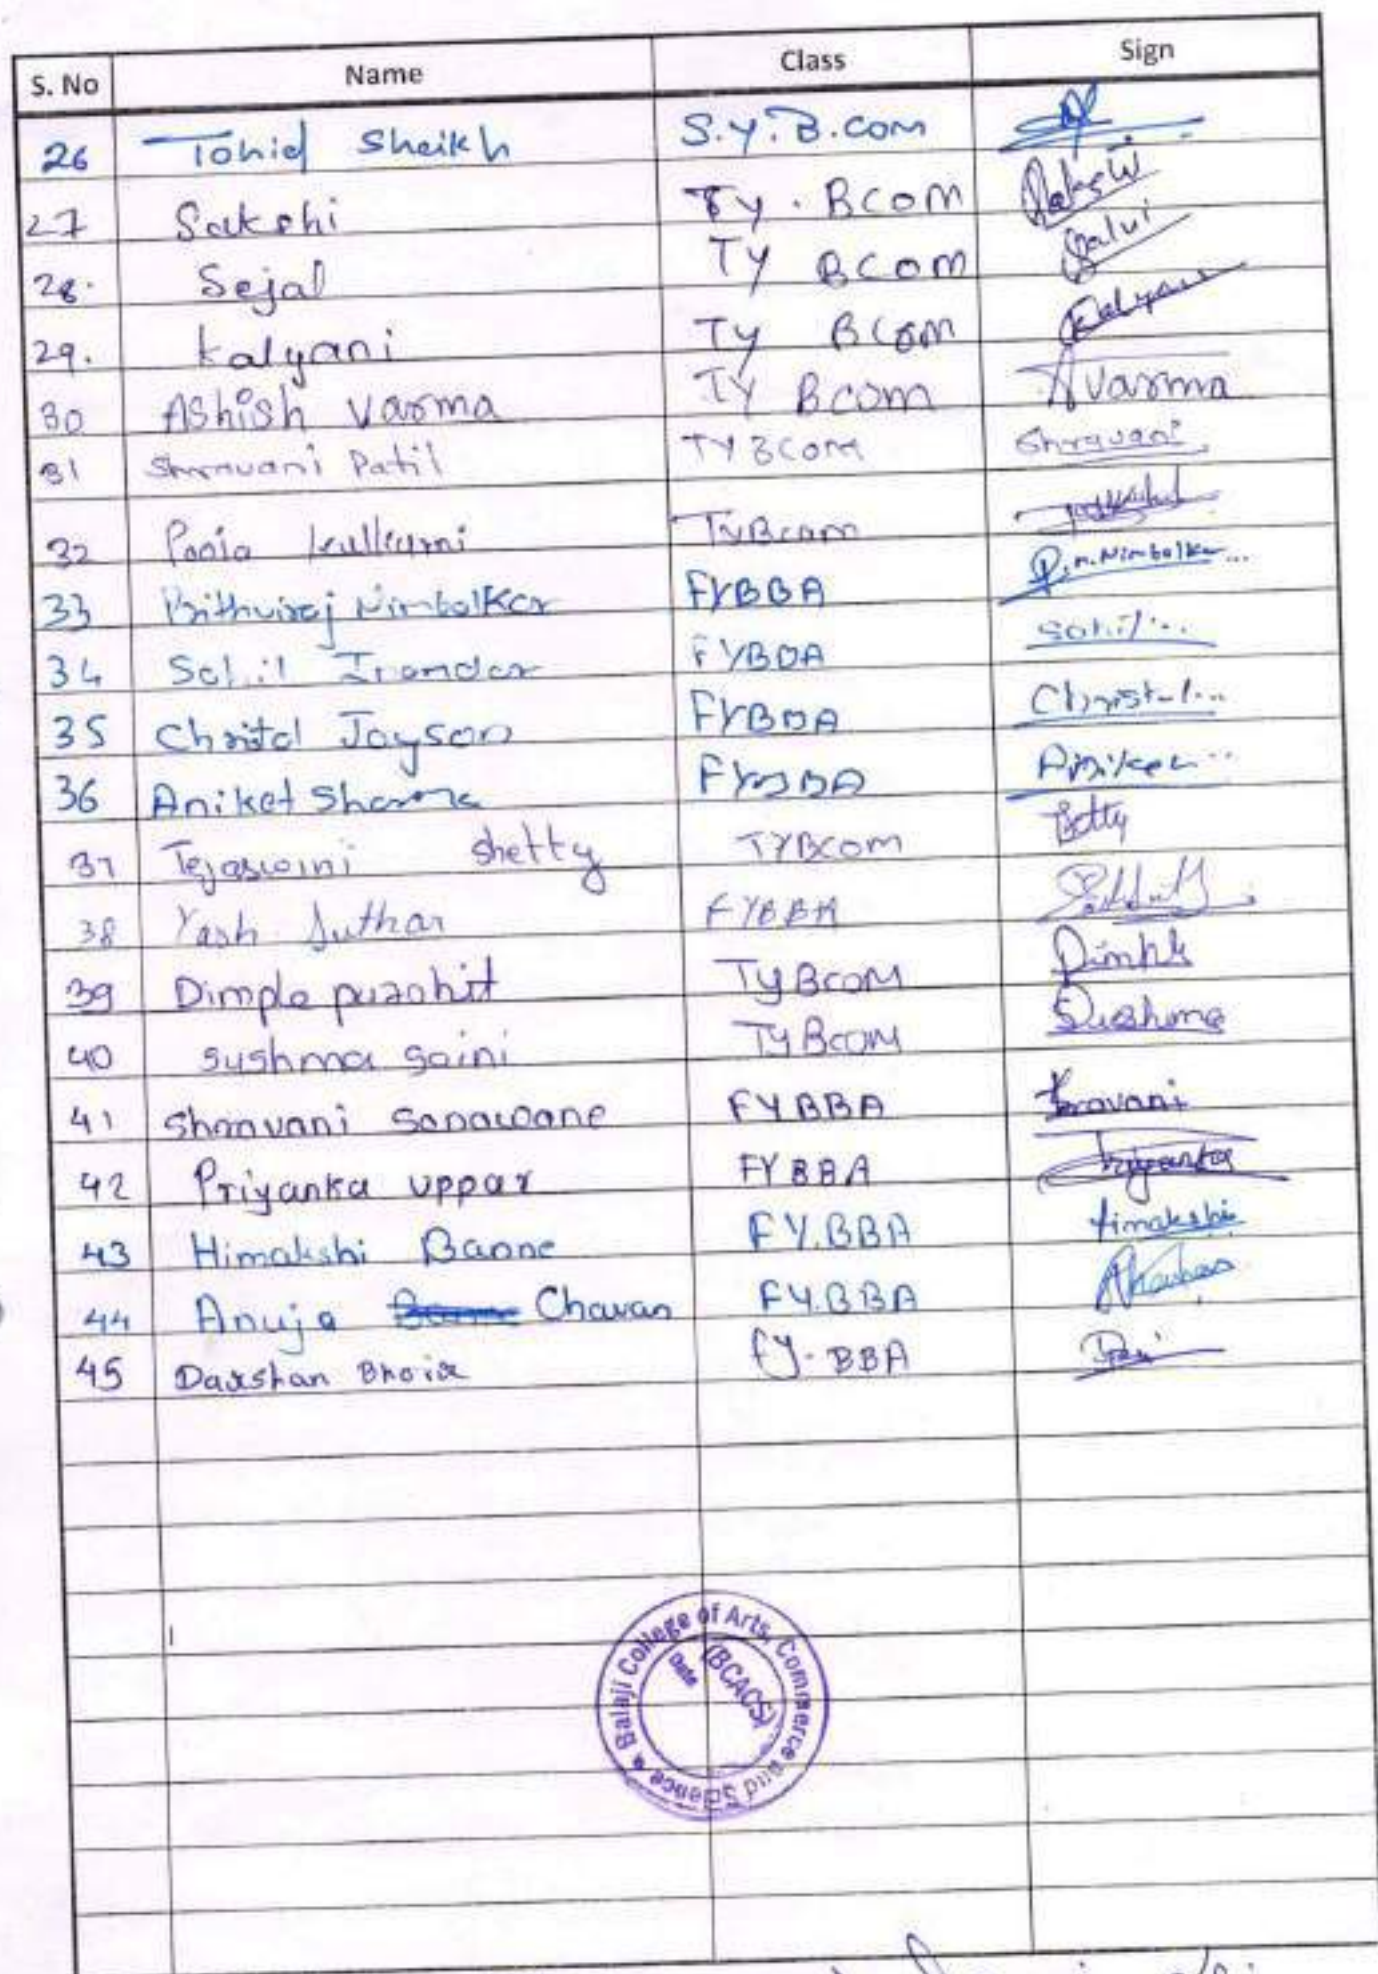 S. No Name Class Sign
26 Tohid Sheikh S.Y.B.com
27 Sakshi TY. BCOM Sakshi
28. Sejal TY BCOM Salvi
29. Kalyani TY BCOM Kalyani
30 Ashish Varma TY Bcom AVarma
31 Shravani Patil TYBCOM Shravani
32 Pooja kulkarni TYBcom
33 Prithviraj Nimbalkar FYBBA P.n.Nimbalkar...
34 Sahil Inamdar FYBBA Sahil...
35 Christal Jayson FYBBA Christal...
36 Aniket Sharma FYBBA Aniket...
37 Tejaswini Shetty TYBCOM
38 Yash Suthar FYBBA
39 Dimple purohit TYBCOM Dimple
40 Sushma Saini TYBCOM Sushma
41 Shravani Sonawane FYBBA Sravani
42 Priyanka uppar FYBBA Priyanka
43 Himakshi Baone FY.BBA Himakshi
44 Anuja Chavan FY.BBA AChavan
45 Darshan Bhoir FY.BBA
Balaji College of Arts, Commerce and Science
Date
(BCACS)